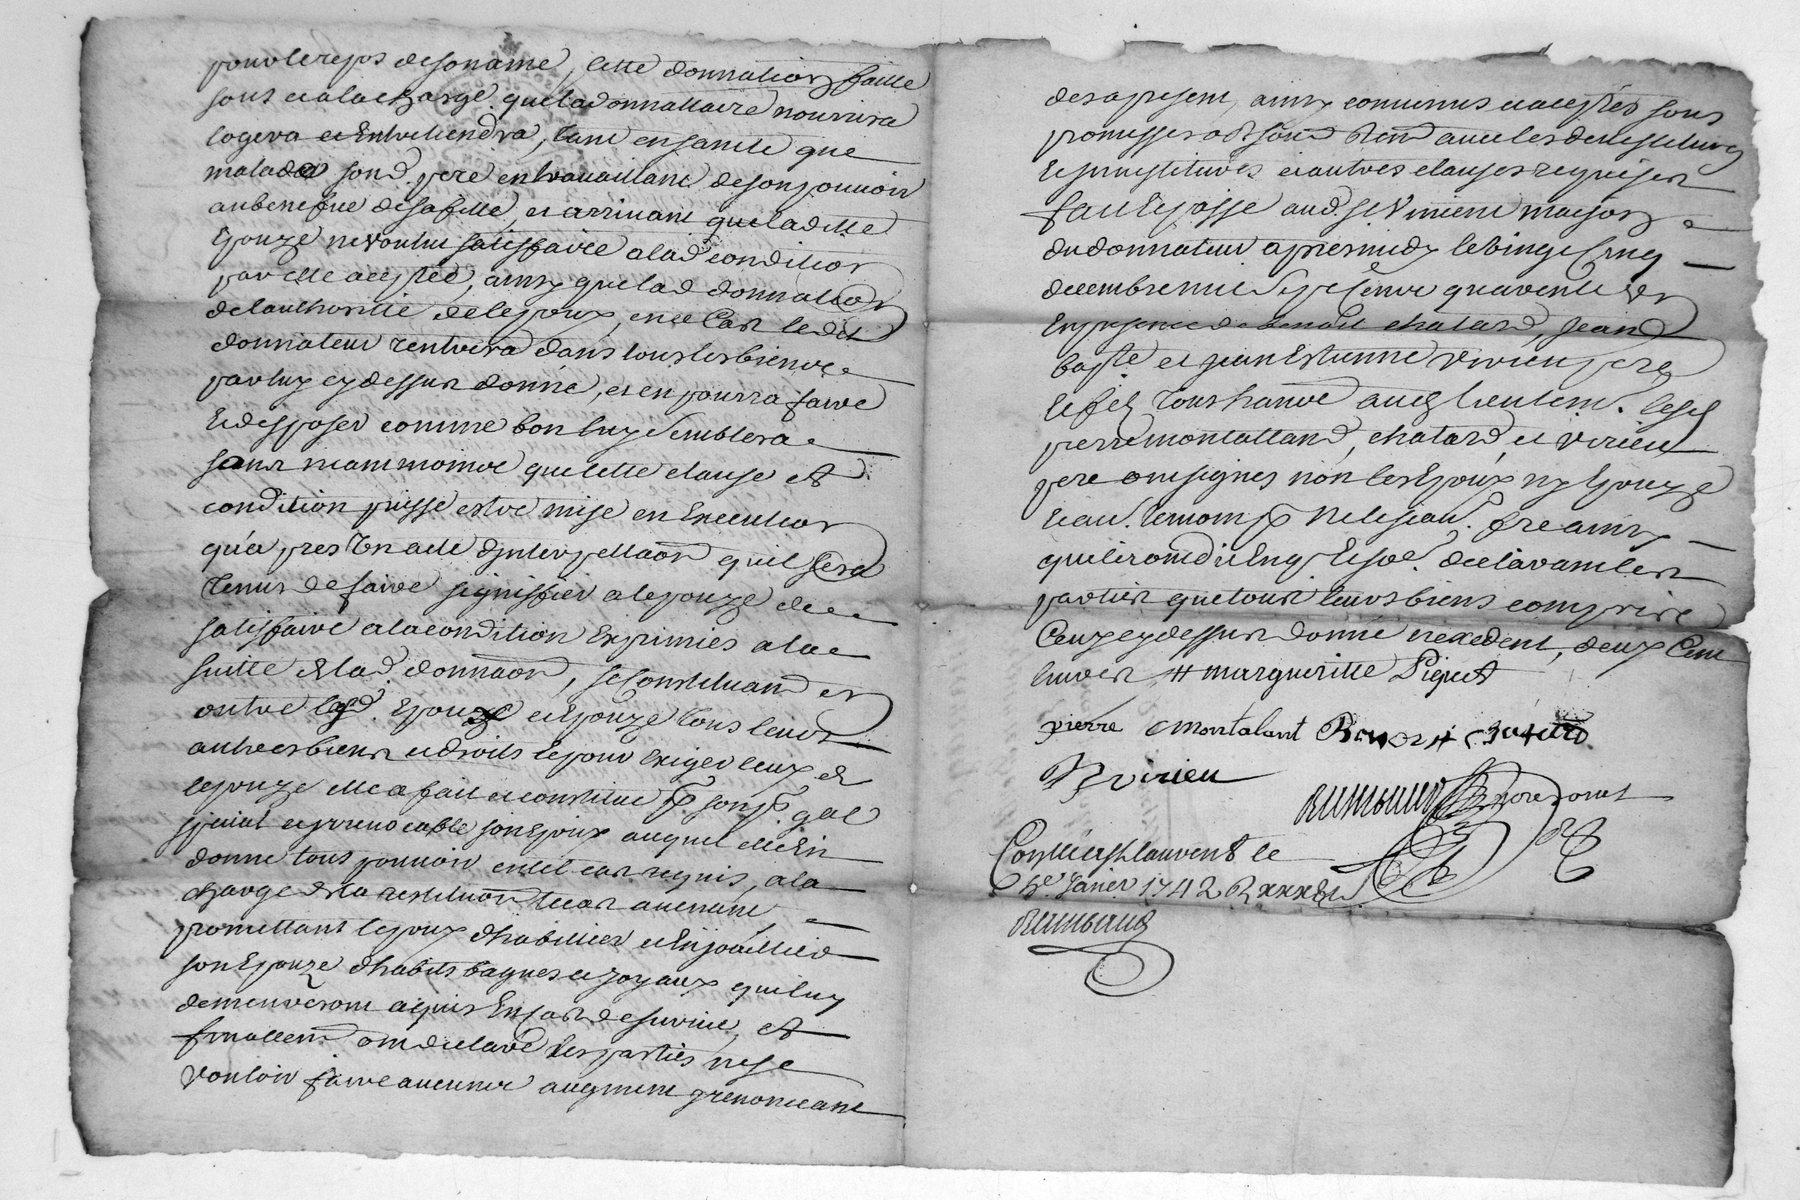 pour le repos de son ame, cette donnation faitte
sous et a la charge que la donnattaire nourrira
logera et Entretiendra, tant en santé que
malade son d. pere en travaillant de son pouvoir
au benefice de sa fille, et arrivant que laditte
Epouze ne voulut satisfaire a lad condition
par elle aceptée, ainsy que lad donnation
de l'authorité de lepoux, en ce Cas ledit
donnateur rentrera dans tous les biens
par luy cy dessus donné, et en pourra faire
Et disposer comme bon luy Semblera
sans neammoins que cette clause et
condition puisse estre mise en Execution
qu'apres Un acte d'Interpellaon quil Sera
Tenus de faire signiffier a lepouze de
satisfaire a la condition Exprimées a la
suitte de lad. donnaon, se Constituand en
outre lesd. Epoux et Epouze tous leurs
autres biens et droits et pour Exiger ceux de
lepouze elle a fait et constitué pr son pr. gnal
spécial et irrevocable son Epoux auquel elle En
donne tous pouvoir en tel cas requis, a la
charge de la restitution le cas avenant,
promettant lepoux d'habillier et Enjoaillier
son Epouze d'habits bagues et joyaux qui luy
demeureront aquis En Cas de survie, et
finallemt ont declaré les parties ne se
vouloir faire aucune augment y renonceant
des a present, ainsy convenus et acceptés sous
promisses obson Rend avec les
et autres clauses requises
fait Et passé aud. St Vincent maison
du donnateur apres midy le vingt Cinq
decembre mil Sept Cent quarante Un
En presence de benoit chatard, Jean
bapte et jean Estienne virieu pere
et fils Tous
pierre montalland, chatard, et virieu
pere ont signés non les Epoux ny Epouze
ne le scav. fre ainsy
quils ont dit Enq Et so. declarant les
parties que tous leurs biens compris
Ceux cy dessus donné nexcedent, deux Cent
livres # margueritte Piquet
pierre montalant Benoit Chatard
Virieu

Conlle a St laurent le
Janier 1742 R